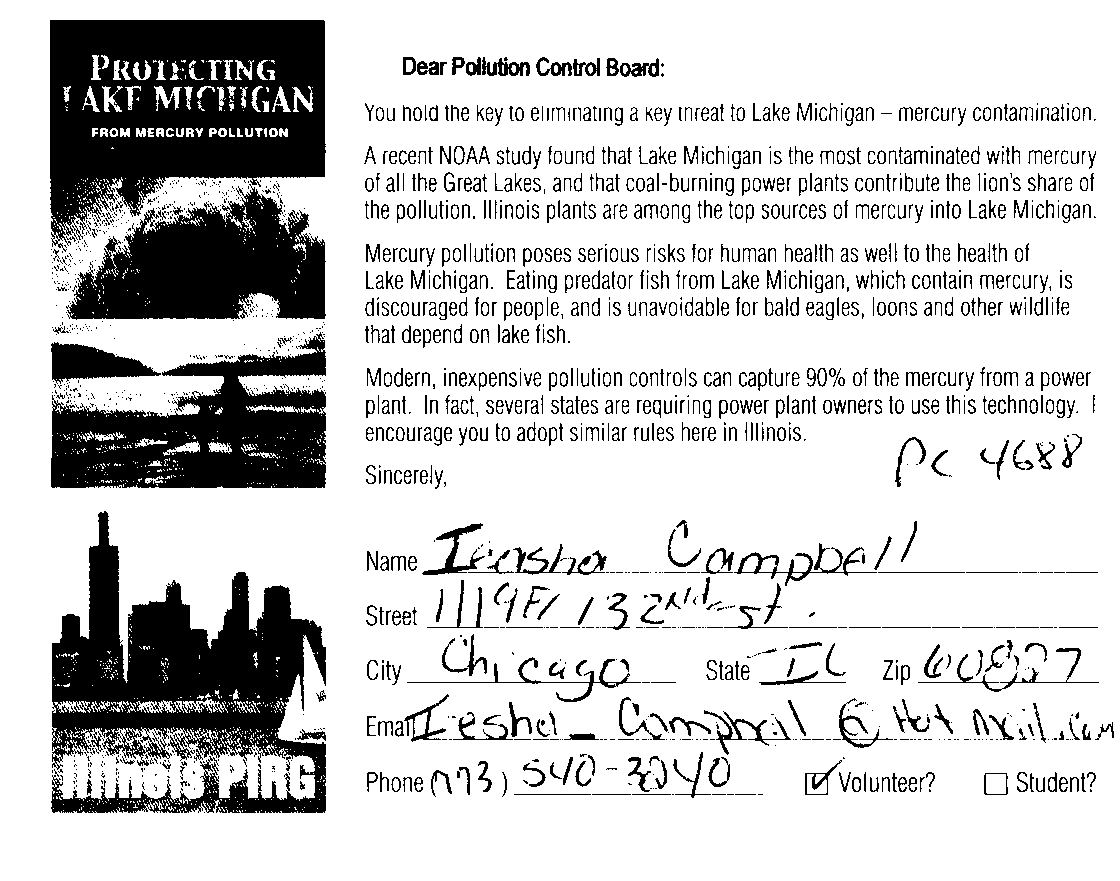 PROTECTING
LAKE MICHIGAN
FROM MERCURY POLLUTION
Illinois PIRG
Dear Pollution Control Board:
You hold the key to eliminating a key threat to Lake Michigan – mercury contamination.
A recent NOAA study found that Lake Michigan is the most contaminated with mercury
of all the Great Lakes, and that coal-burning power plants contribute the lion's share of
the pollution. Illinois plants are among the top sources of mercury into Lake Michigan.
Mercury pollution poses serious risks for human health as well to the health of
Lake Michigan. Eating predator fish from Lake Michigan, which contain mercury, is
discouraged for people, and is unavoidable for bald eagles, loons and other wildlife
that depend on lake fish.
Modern, inexpensive pollution controls can capture 90% of the mercury from a power
plant. In fact, several states are requiring power plant owners to use this technology. I
encourage you to adopt similar rules here in Illinois.
PC 4688
Sincerely,
Name Ieasha Campbell
Street 132nd st.
City Chicago State IL Zip
Email @ Hotmail.com
Phone (773) 540-3240 Volunteer? Student?